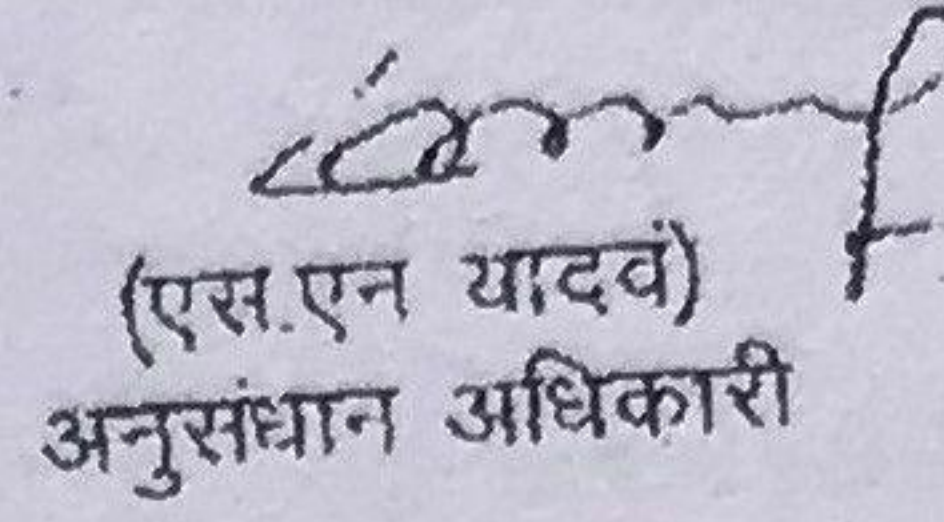 (एस.एन यादवं)
अनुसंधान अधिकारी